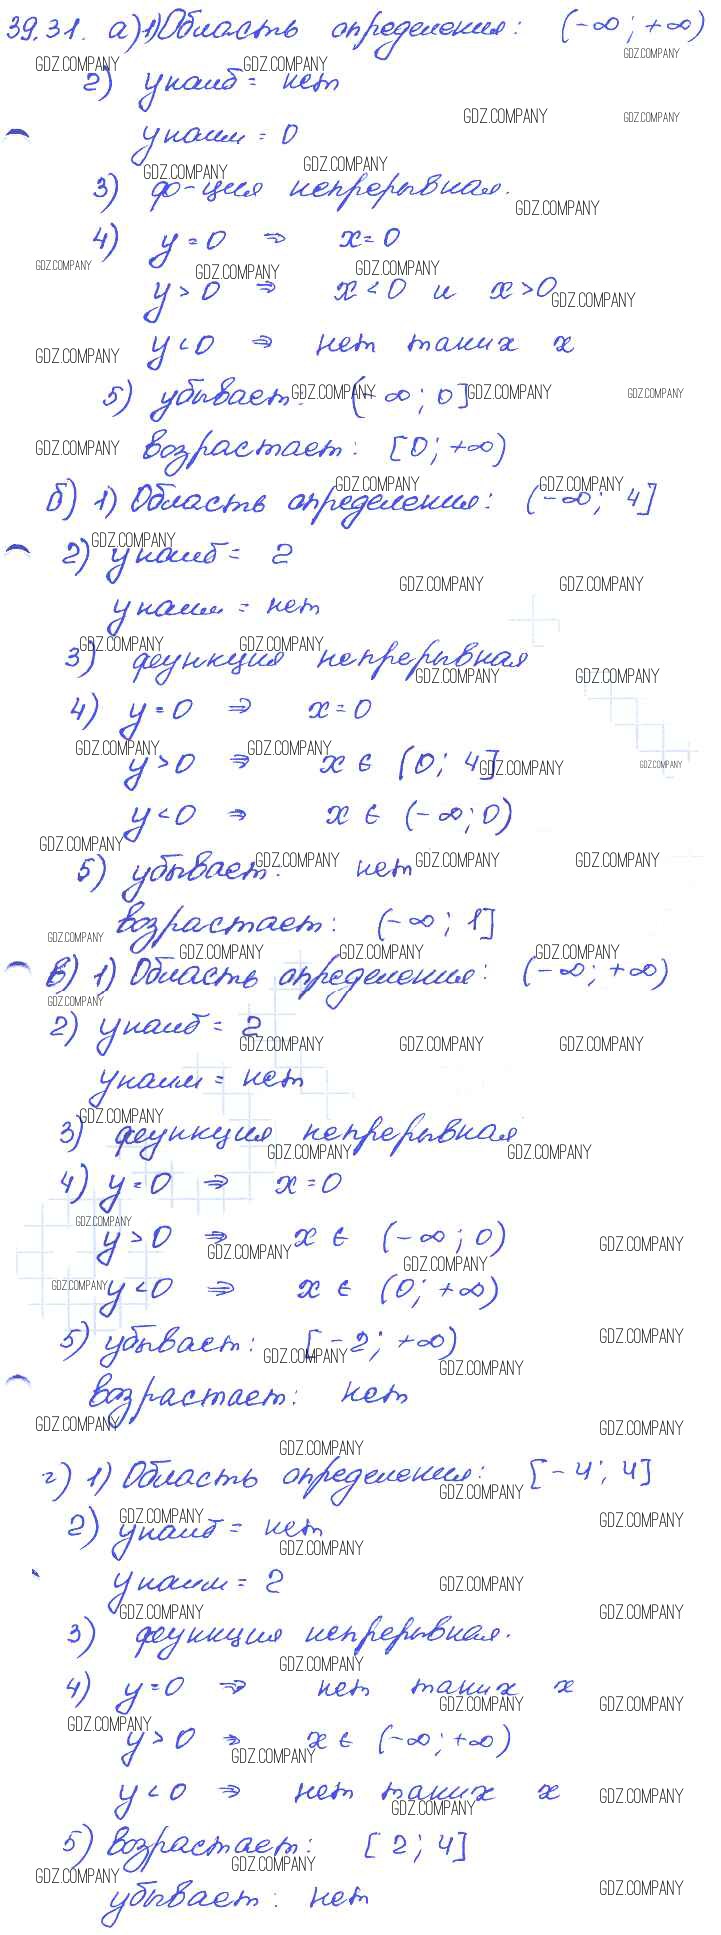 39.31. а)1)Область определения: (-∞; +∞)
2) yнаиб = нет
yнаим = 0
3) ф-ция непрерывная.
4) y = 0 ⇒ x = 0
y > 0 ⇒ x < 0 и x > 0
y < 0 ⇒ нет таких x
5) убывает: (-∞; 0]
возрастает: [0; +∞)
б) 1) Область определения: (-∞; 4]
2) yнаиб = 2
yнаим = нет
3) функция непрерывная
4) y = 0 ⇒ x = 0
y > 0 ⇒ x ∈ (0; 4]
y < 0 ⇒ x ∈ (-∞; 0)
5) убывает: нет
возрастает: (-∞; 1]
в) 1) Область определения: (-∞; +∞)
2) yнаиб = 2
yнаим = нет
3) функция непрерывная
4) y = 0 ⇒ x = 0
y > 0 ⇒ x ∈ (-∞; 0)
y < 0 ⇒ x ∈ (0; +∞)
5) убывает: [-2; +∞)
возрастает: нет
г) 1) Область определения: [-4; 4]
2) yнаиб = нет
yнаим = 2
3) функция непрерывная.
4) y = 0 ⇒ нет таких x
y > 0 ⇒ x ∈ (-∞; +∞)
y < 0 ⇒ нет таких x
5) возрастает: [2; 4]
убывает: нет
GDZ.COMPANY